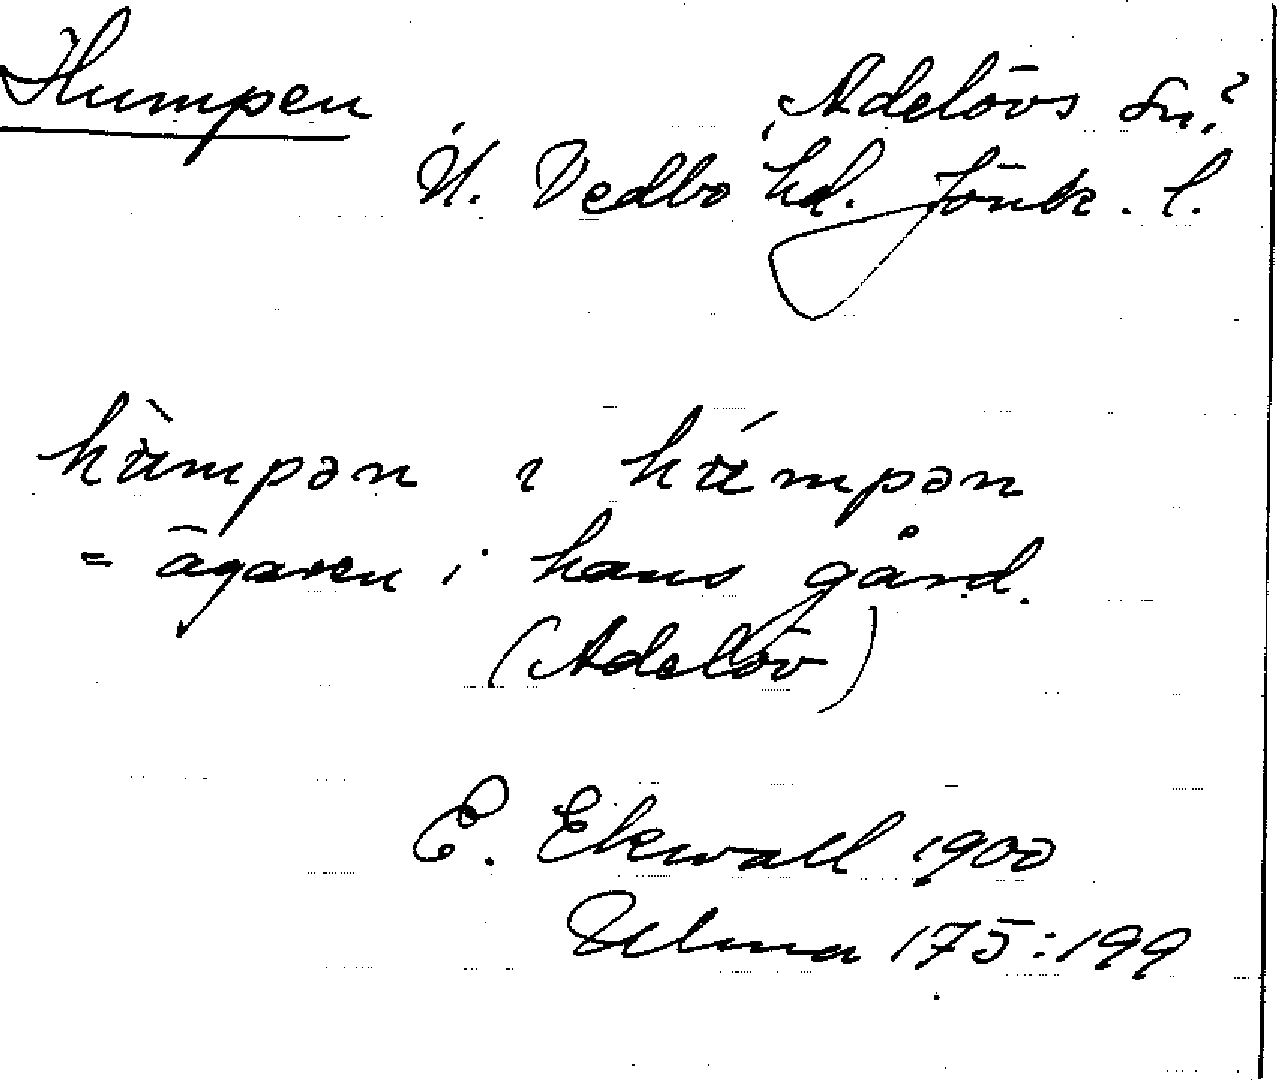 Humpen
Adelövs sn?
N. Vedbo hd. Jönk. l.
hùmpən ı húmpən
= ägaren i hans gård.
(Adelöv)
E. Ekwall 1900
Ulma 175:199